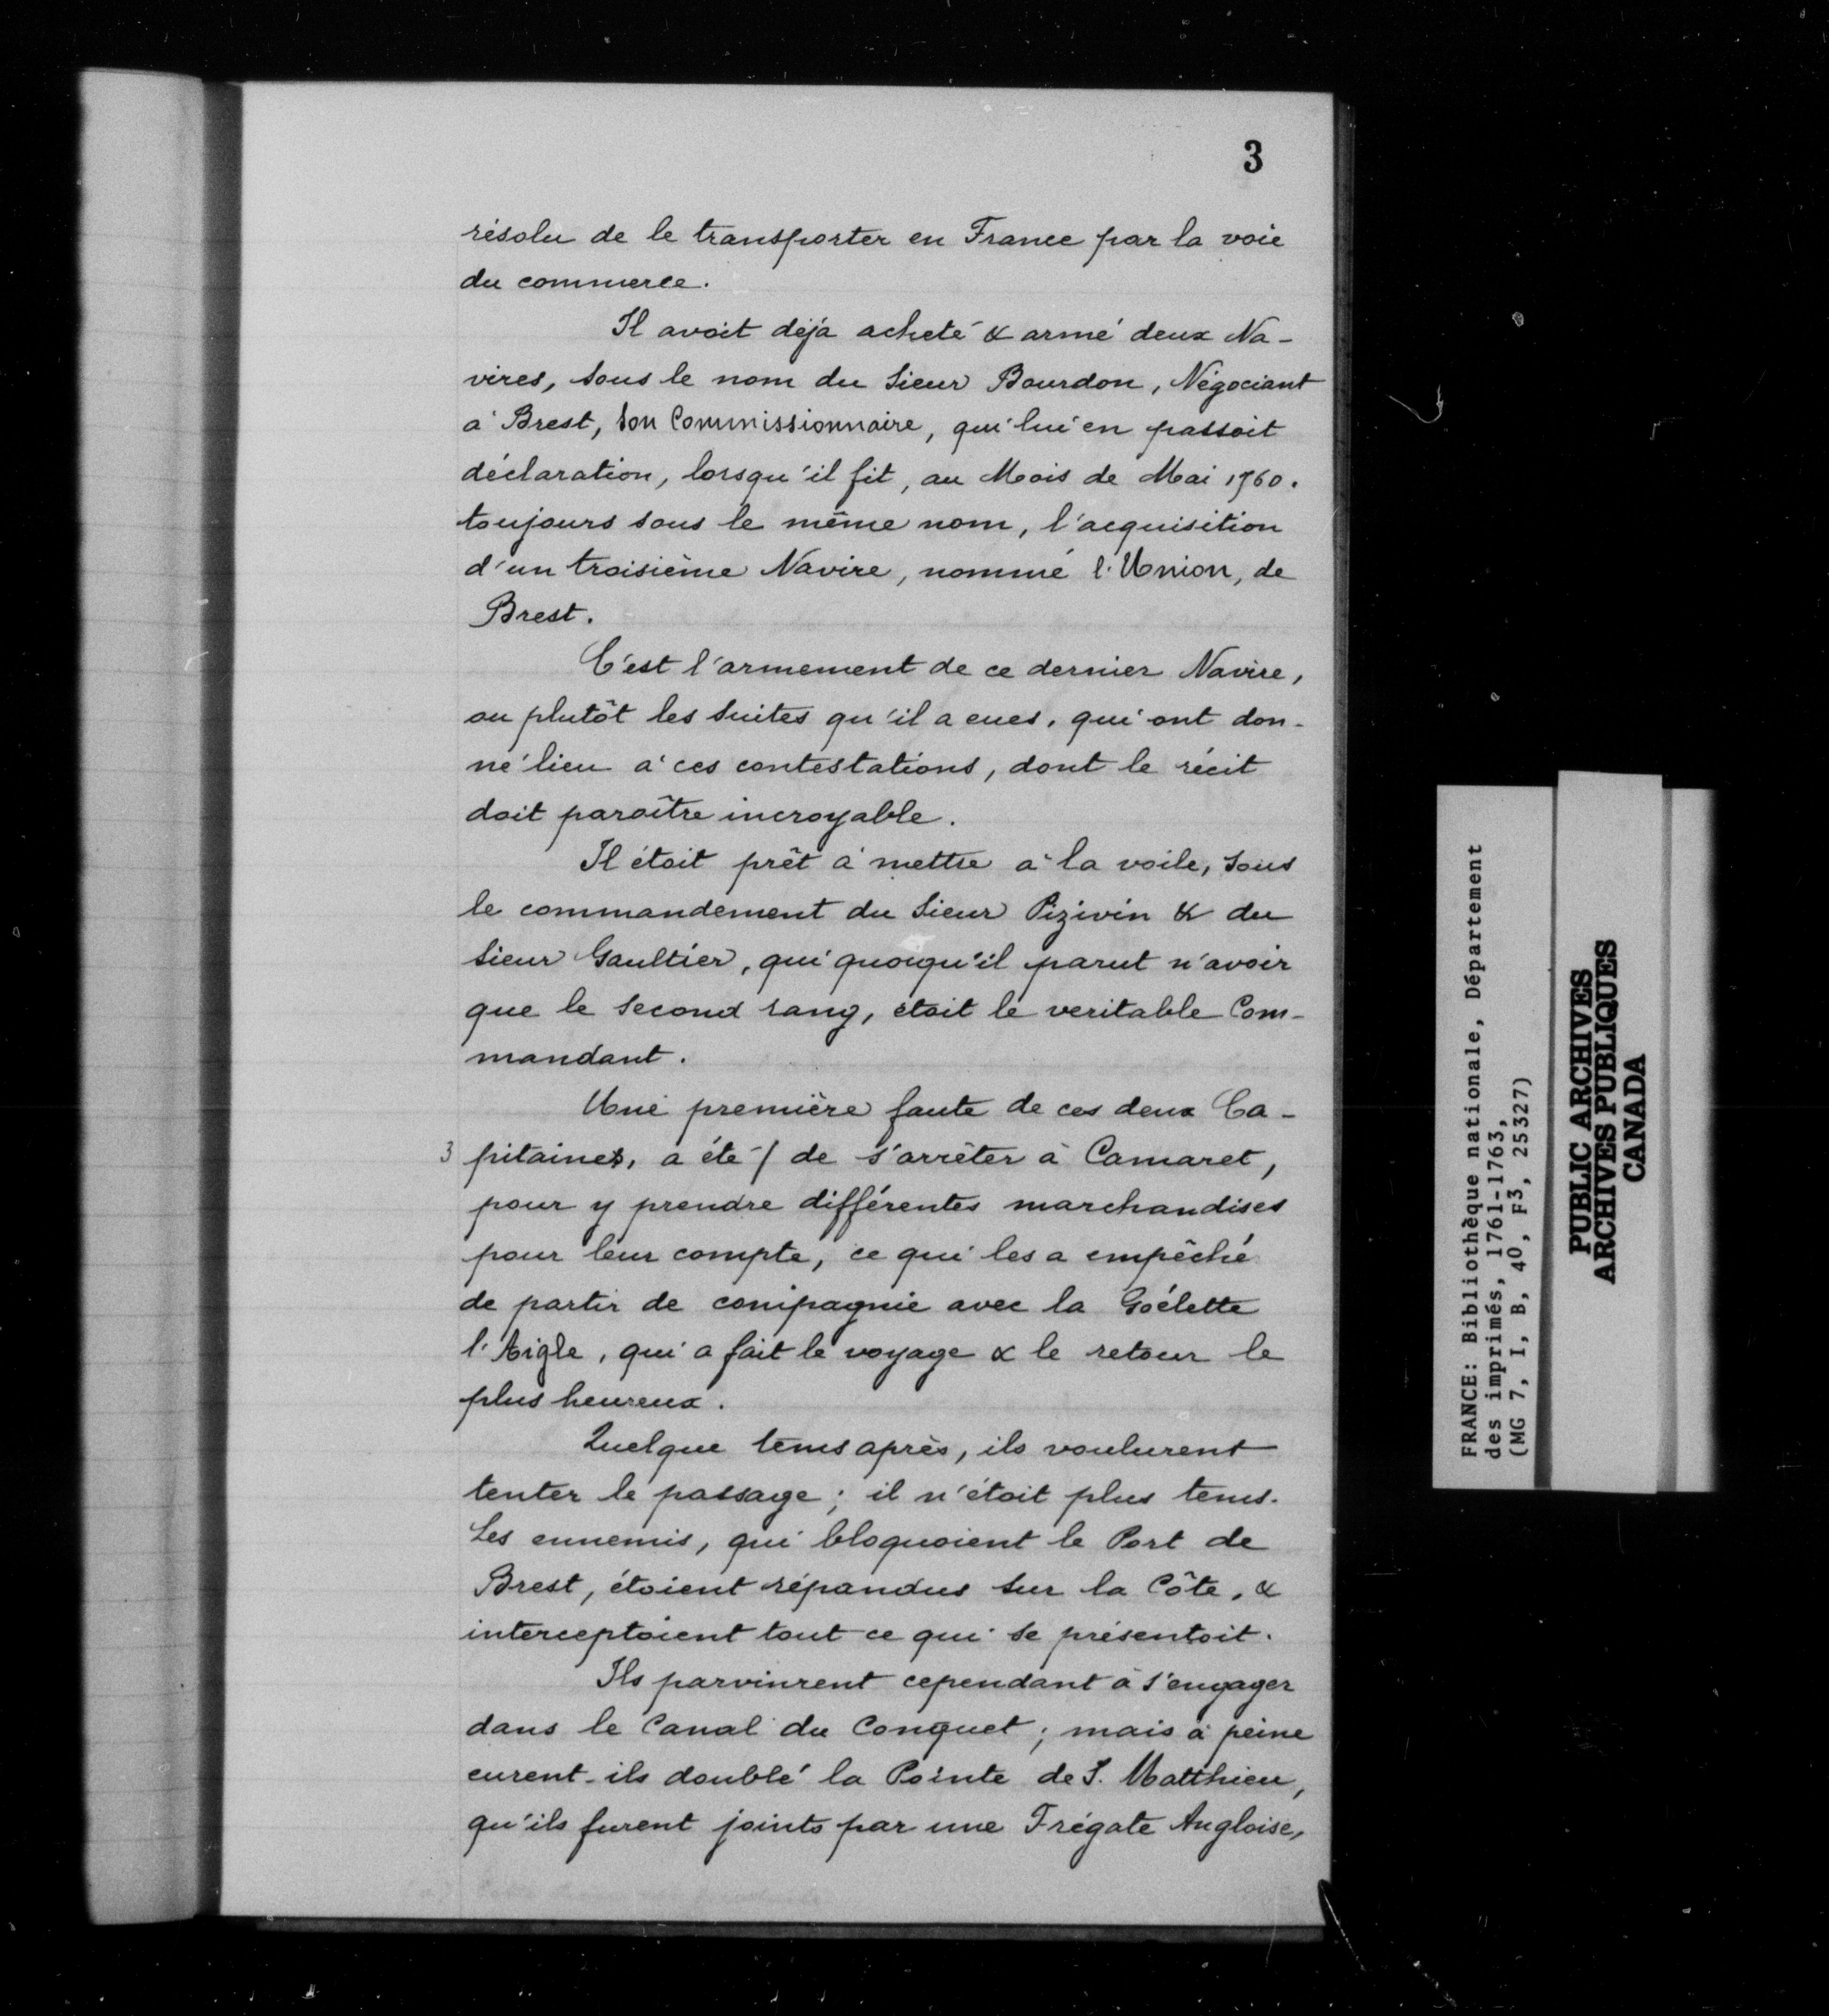 3
résolu de le transporter en France par la voie
du commerce.
Il avoit déjà acheté & armé deux Na-
vires, sous le nom du Sieur Bourdon, Négociant
à Brest, son Commissionnaire, qui lui en passoit
déclaration, lorsqu'il fit, au Mois de Mai 1760.
toujours sous le même nom, l'acquisition
d'un troisième Navire, nommé l'Union, de
Brest.
C'est l'armement de ce dernier Navire,
ou plutôt les suites qu'il a eues, qui ont don-
né lieu à ces contestations, dont le récit
doit paroître incroyable.
Il étoit prêt à mettre à la voile, sous
le commandement du Sieur Pizivin & du
Sieur Gaultier, qui quoiqu'il parut n'avoir
que le second rang, étoit le veritable Com-
mandant.
Une première faute de ces deux Ca-
3 pitaines, a été / de s'arrêter à Camaret,
pour y prendre différentes marchandises
pour leur compte, ce qui les a empêché
de partir de compagnie avec la Goélette
l'Aigle, qui a fait le voyage & le retour le
plus heureux.
Quelque tems après, ils voulurent
tenter le passage; il n'étoit plus tems.
Les ennemis, qui bloquoient le Port de
Brest, étoient répandus sur la Côte, &
interceptoient tout ce qui se présentoit.
Ils parvinrent cependant à s'engager
dans le Canal du Conquet; mais à peine
eurent-ils doublé la Pointe de S. Matthieu,
qu'ils furent joints par une Frégate Angloise,
FRANCE: Bibliothèque nationale, Département
des imprimés, 1761-1763,
(MG 7, I, B, 40, F3, 25327)
PUBLIC ARCHIVES
ARCHIVES PUBLIQUES
CANADA